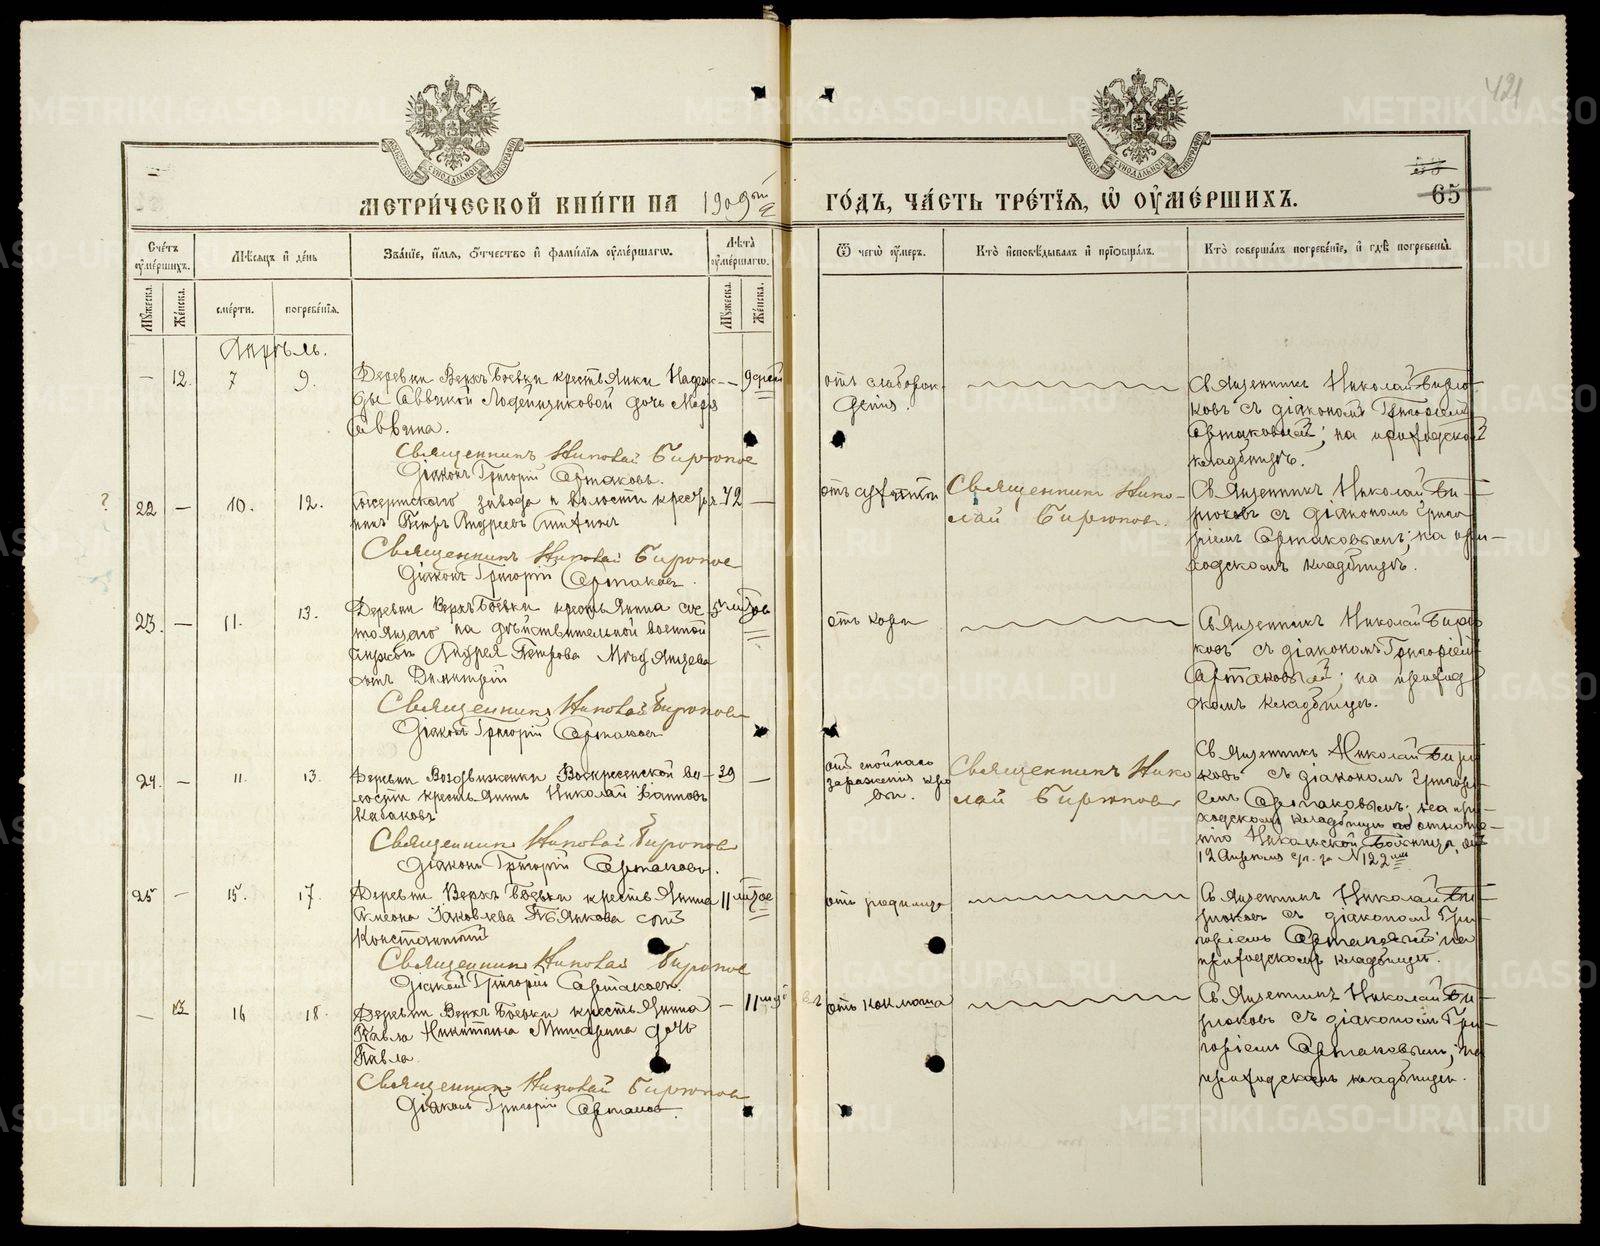 421
МЕТРИ́ЧЕСКОЙ КНИ́ГИ НА 1909ый
ГО́ДЪ, ЧА́СТЬ ТРЕ́ТЇѦ, Ѡ҆ ОУ҆МЕ́РШИХЪ.
65
Сче́тъ оу҆ме́ршихъ.
Мѣ́сѧцъ и҆ де́нь
Зва́нїе, и҆́мѧ, ѻ҆́тчество и҆ фамѝлїѧ оу҆ме́ршагѡ.
Лѣ́та оу҆ме́ршагѡ.
Ѿ чегѡ̀ оу҆́меръ.
Кто̀ и҆сповѣ́дывалъ и҆ прїѡбща́лъ.
Кто̀ соверша́лъ погребе́нїе, и҆ гдѣ̀ погребены̀.
Мꙋ́жеска.
Же́нска.
сме́рти.
погребе́нїѧ.
Мꙋ́жеска.
Же́нска.
Апрѣль.
— 12. 7 9. Деревни Верхъ Боевки крестьянки Надеж- — 9 дней
ды Саввиной Лодейщиковой дочь Марія
Саввина.
Священникъ Николай Бирюков
Діаконъ Григорій Сартаковъ.
отъ слаборож
денія.
Священникъ Николай Бирю-
ковъ съ діакономъ Григоріемъ
Сартаковымъ; на приходском
кладбищѣ.
? 22 — 10. 12. Сысертскаго завода и волости крестья 72 —
нинъ Петръ Андреевъ
Священникъ Николай Бирюков
Діаконъ Григорій Сартаков.
отъ
Священникъ Нико-
лай Бирюков.
Священникъ Николай Би-
рюковъ съ діакономъ Григо
ріемъ Сартаковымъ; на при-
ходскомъ кладбищѣ.
23. — 11. 13. Деревни Верхъ Боевки крестьянина сос 5 мѣсяцов
тоящаго на дѣйствительной военной
службѣ Андрея Петрова
сынъ Димитрій
Священникъ Николай Бирюков
Діаконъ Григорій Сартаков
отъ кори
Священникъ Николай Бирю
ковъ съ діакономъ Григоріемъ
Сартаковымъ; на приход
скомъ кладбищѣ.
24. — 11. 13. Деревни Воздвиженки Воскресенской во- 39 —
лости крестьянинъ Николай Іоанновъ
Кабаковъ
Священникъ Николай Бирюков
Діаконъ Григорій Сартаковъ.
отъ гнойнаго
зараженія кро
ви.
Священникъ Нико
лай Бирюков
Священникъ Николай Бирю
ковъ съ діакономъ Григорі
емъ Сартаковымъ; на при-
ходскомъ кладбищѣ по отноше-
нію Никольской Больницы, отъ
12 Апреля с.г. за № 122мъ
25 — 15. 17. Деревни Верхъ Боевки крестьянина 11 мѣсяцов
Симеона Іаковлева Пьянкова сынъ
Константинъ
Священникъ Николай Бирюков
Діаконъ Григорій Сартаковъ.
отъ родимца
Священникъ Николай Би-
рюковъ съ діакономъ Гри-
горіемъ Сартаковымъ; на
приходскомъ кладбищѣ.
— 13 16 18. Деревни Верхъ Боевки крестьянина — 11
Павла Никитина дочь
Павла.
Священникъ Николай Бирюков
Діаконъ Григорій Сартаков.
отъ коклюша
Священникъ Николай Би-
рюковъ съ діакономъ Гри-
горіемъ Сартаковымъ; на
приходскомъ кладбищѣ.
METRIKI.GASO-URAL.RU